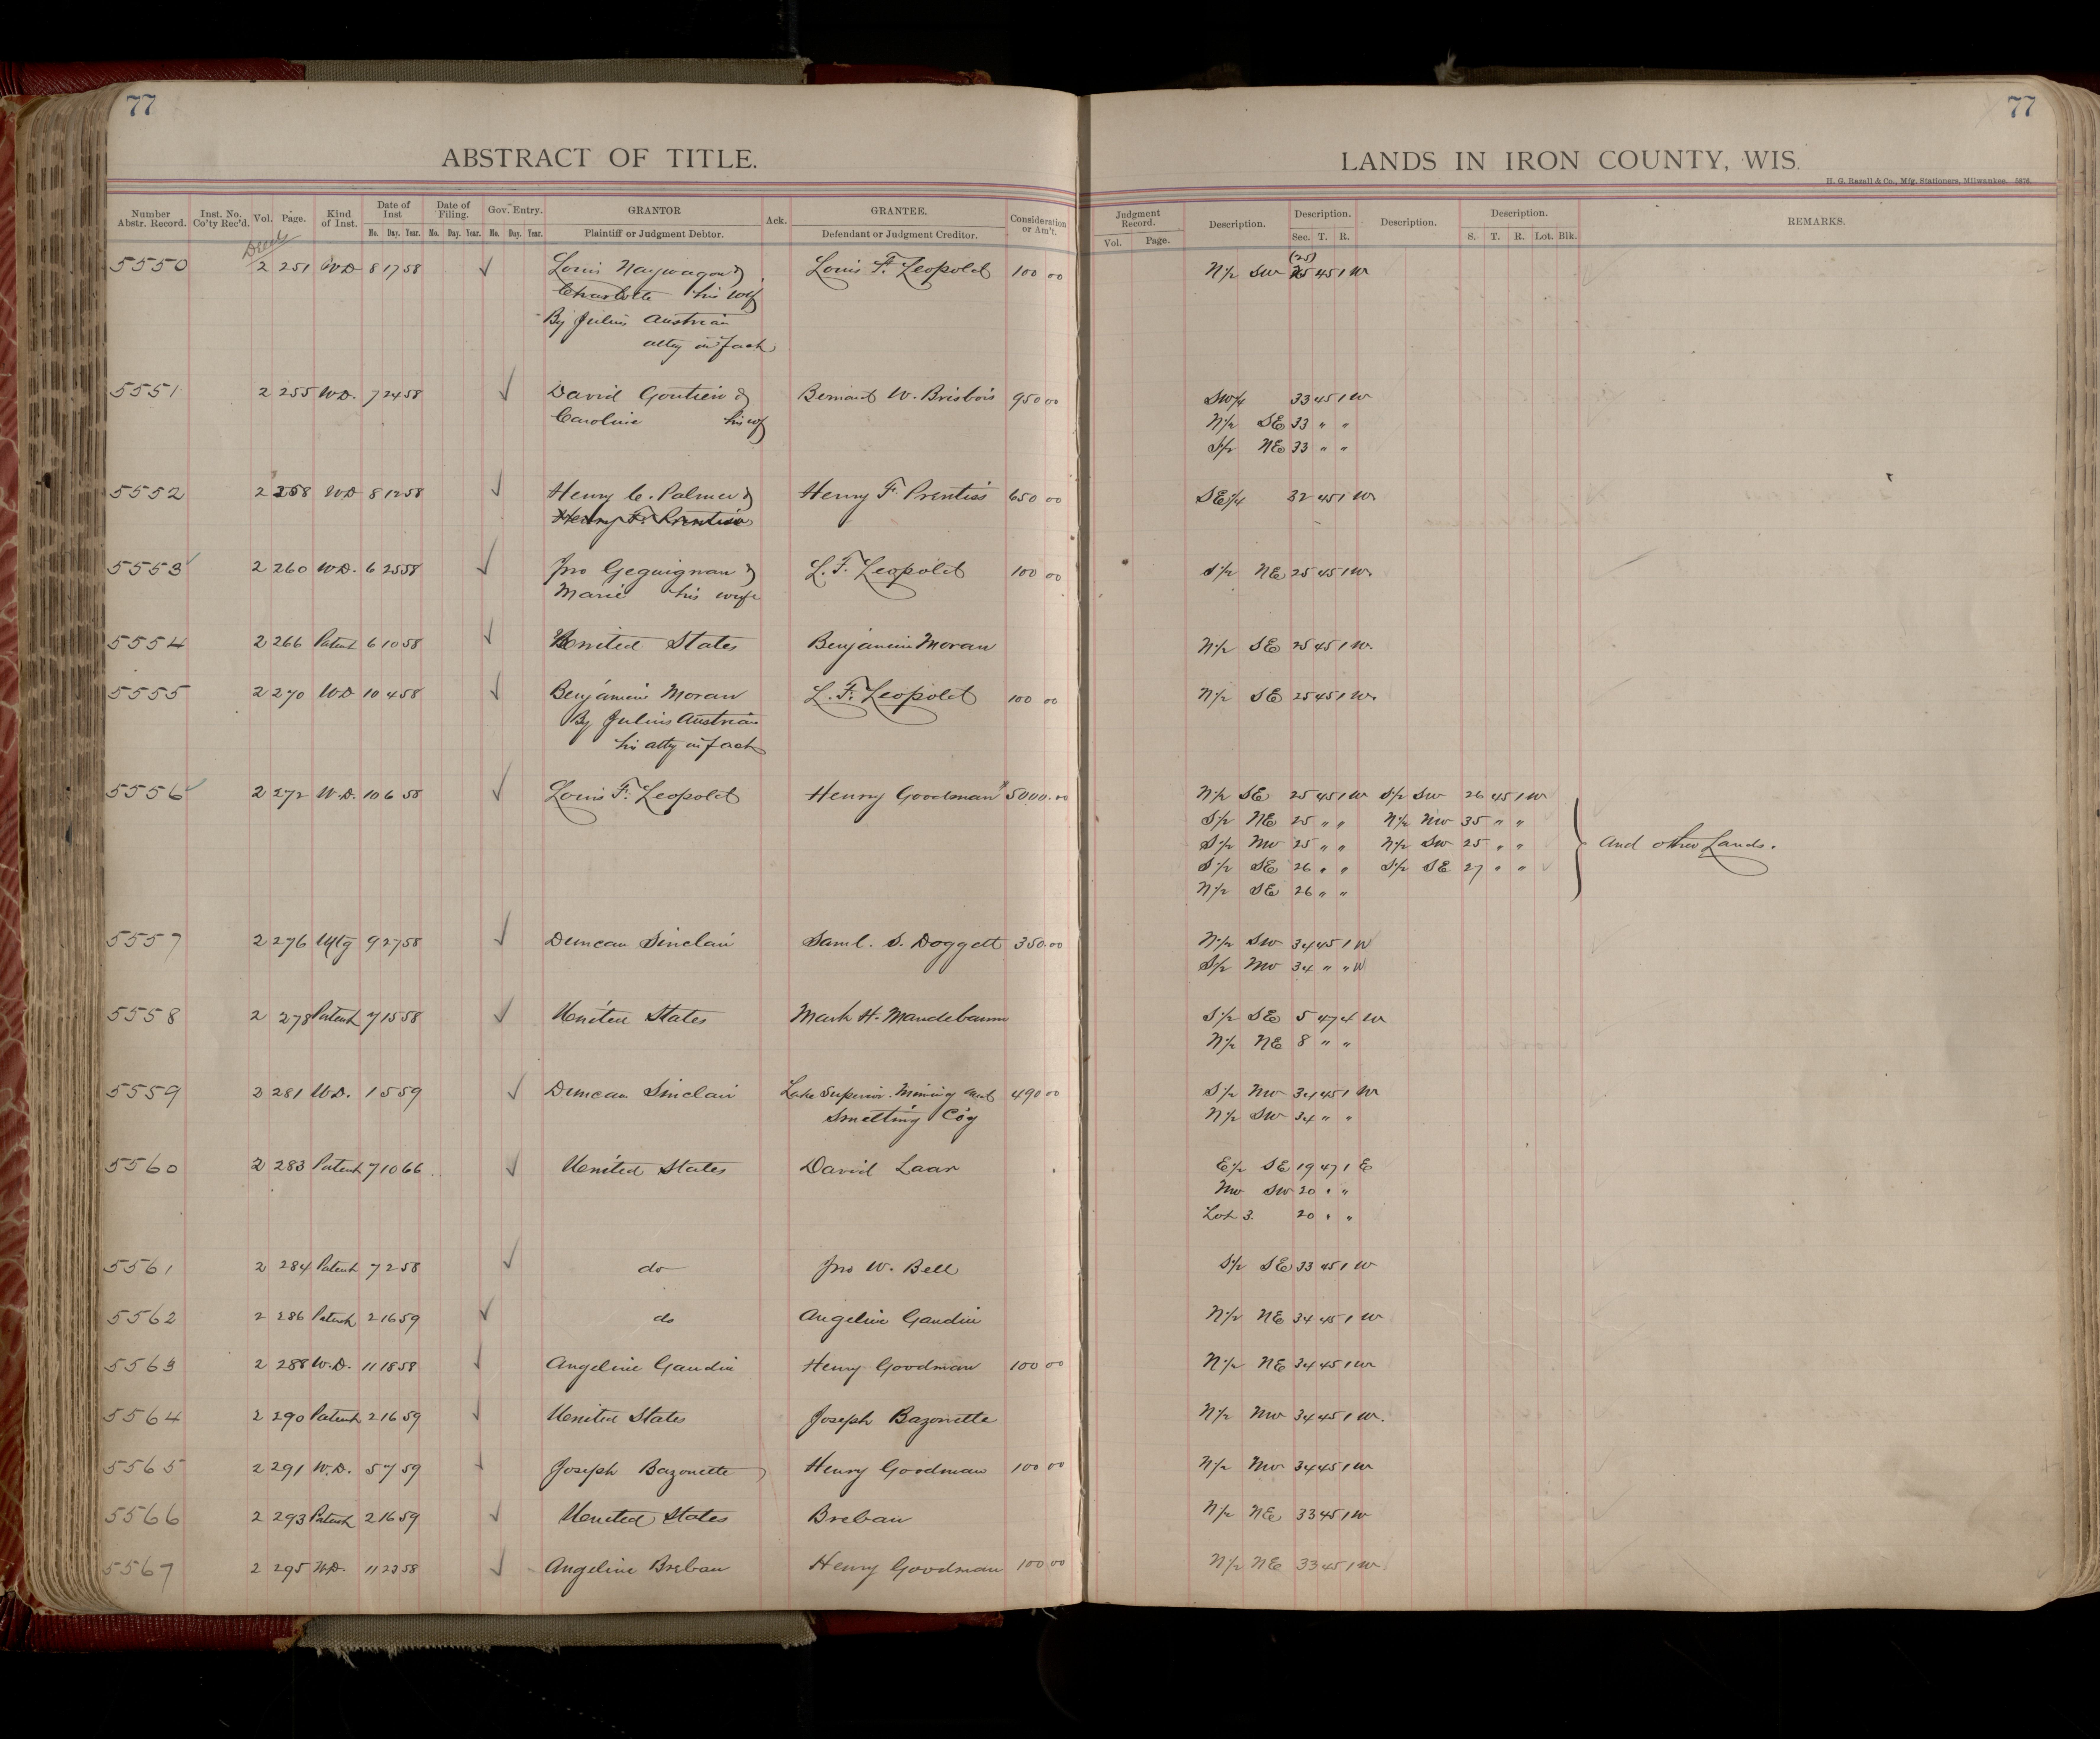 77
77
ABSTRACT OF TITLE.
LANDS IN IRON COUNTY, WIS.
H. G. Razall & Co., Mfg. Stationers, Milwaukee. 5876
Number Abstr. Record. Inst. No. Co'ty Rec'd. Vol. Page. Kind of Inst. Date of Inst Mo. Day. Year. Date of Filing. Mo. Day. Year. Gov. Entry. Mo. Day. Year. GRANTOR Plaintiff or Judgment Debtor. Ack. GRANTEE. Defendant or Judgment Creditor. Consideration or Am't.
Judgment Record. Vol. Page. Description. Description. Sec. T. R. Description. Description. S. T. R. Lot. Blk. REMARKS.
Deeds
(25)
5550 2 251 WD 8 17 58 ✓ Louis & Louis F. Leopold 100 00 N½ SW 25 45 1 W
Charlotte his wife
By Julius Austrian
atty in fact
5551 2 255 W.D. 7 24 58 ✓ David & Bernard W. Brisbois 950 00 SW¼ 33 45 1 W
Caroline his wf N½ SE 33 " "
S½ NE 33 " "
5552 2 258 WD 8 12 58 ✓ Henry C. Palmer & Henry F. Prentiss 650 00 SE¼ 32 45 1 W
Henry F. Prentiss
5553 ✓ 2 260 W.D. 6 25 58 ✓ Jno Geguignon & L. F. Leopold 100 00 S½ NE 25 45 1 W.
Marie his wife
5554 2 266 Patent 6 10 58 ✓ United States Benjamin Moran N½ SE 25 45 1 W.
5555 2 270 WD 10 4 58 ✓ Benjamin Moran L. F. Leopold 100 00 N½ SE 25 45 1 W.
By Julius Austrian
his atty in fact
5556 ✓ 2 272 W.D. 10 6 58 ✓ Louis F. Leopold Henry Goodman $5000.00 N½ SE 25 45 1 W S½ SW 26 45 1 W
S½ NE 25 " " N½ NW 35 " "
S½ NW 25 " " N½ SW 25 " " And other Lands.
S½ SE 26 " " S½ SE 27 " "
N½ SE 26 " "
5557 2 276 Mtg 9 27 58 ✓ Duncan Sinclair Saml. S. Doggett 350.00 N½ SW 34 45 1 W
S½ NW 34 " " W
5558 2 278 Patent 7 15 58 ✓ United States Mark H. Mandebaum S½ SE 5 47 4 W
N½ NE 8 " "
5559 2 281 W.D. 1 5 59 ✓ Duncan Sinclair Lake Superior Mining and 490 00 S½ NW 34 45 1 W
Smelting Co'y N½ SW 34 " "
5560 2 283 Patent 7 10 66 ✓ United States David Laar E½ SE 19 47 1 E
NW SW 20 " "
Lot 3. 20 " "
5561 2 284 Patent 7 2 58 ✓ do Jno W. Bell S½ SE 33 45 1 W
5562 2 286 Patent 2 16 59 ✓ do Angeline Gaudin N½ NE 34 45 1 W
5563 2 288 W.D. 11 18 58 ✓ Angeline Gaudin Henry Goodman 100 00 N½ NE 34 45 1 W
5564 2 290 Patent 2 16 59 ✓ United States Joseph Bazonette N½ NW 34 45 1 W.
5565 2 291 W.D. 5 7 59 ✓ Joseph Bazonette Henry Goodman 100 00 N½ NW 34 45 1 W
5566 2 293 Patent 2 16 59 ✓ United States Breban N½ NE 33 45 1 W
5567 2 295 W.D. 11 23 58 ✓ Angeline Breban Henry Goodman 100 00 N½ NE 33 45 1 W